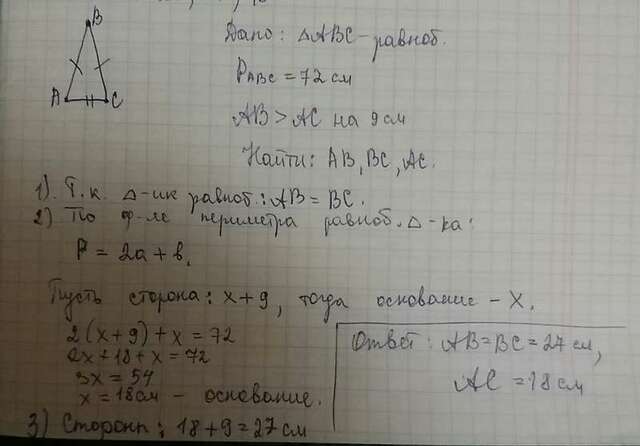 B
A
C
Дано: △ABC - равноб.
P ABC = 72 см
AB > AC на 9 см
Найти: AB, BC, AC.
1). Т.к. △-ик равноб.: AB = BC.
2) По ф-ле периметра равноб. △-ка:
P = 2a + b,
Пусть сторона: x + 9, тогда основание - x.
2(x+9) + x = 72
2x + 18 + x = 72
3x = 54
x = 18 см - основание.
3) Стороны: 18 + 9 = 27 см
Ответ: AB = BC = 27 см,
AC = 18 см